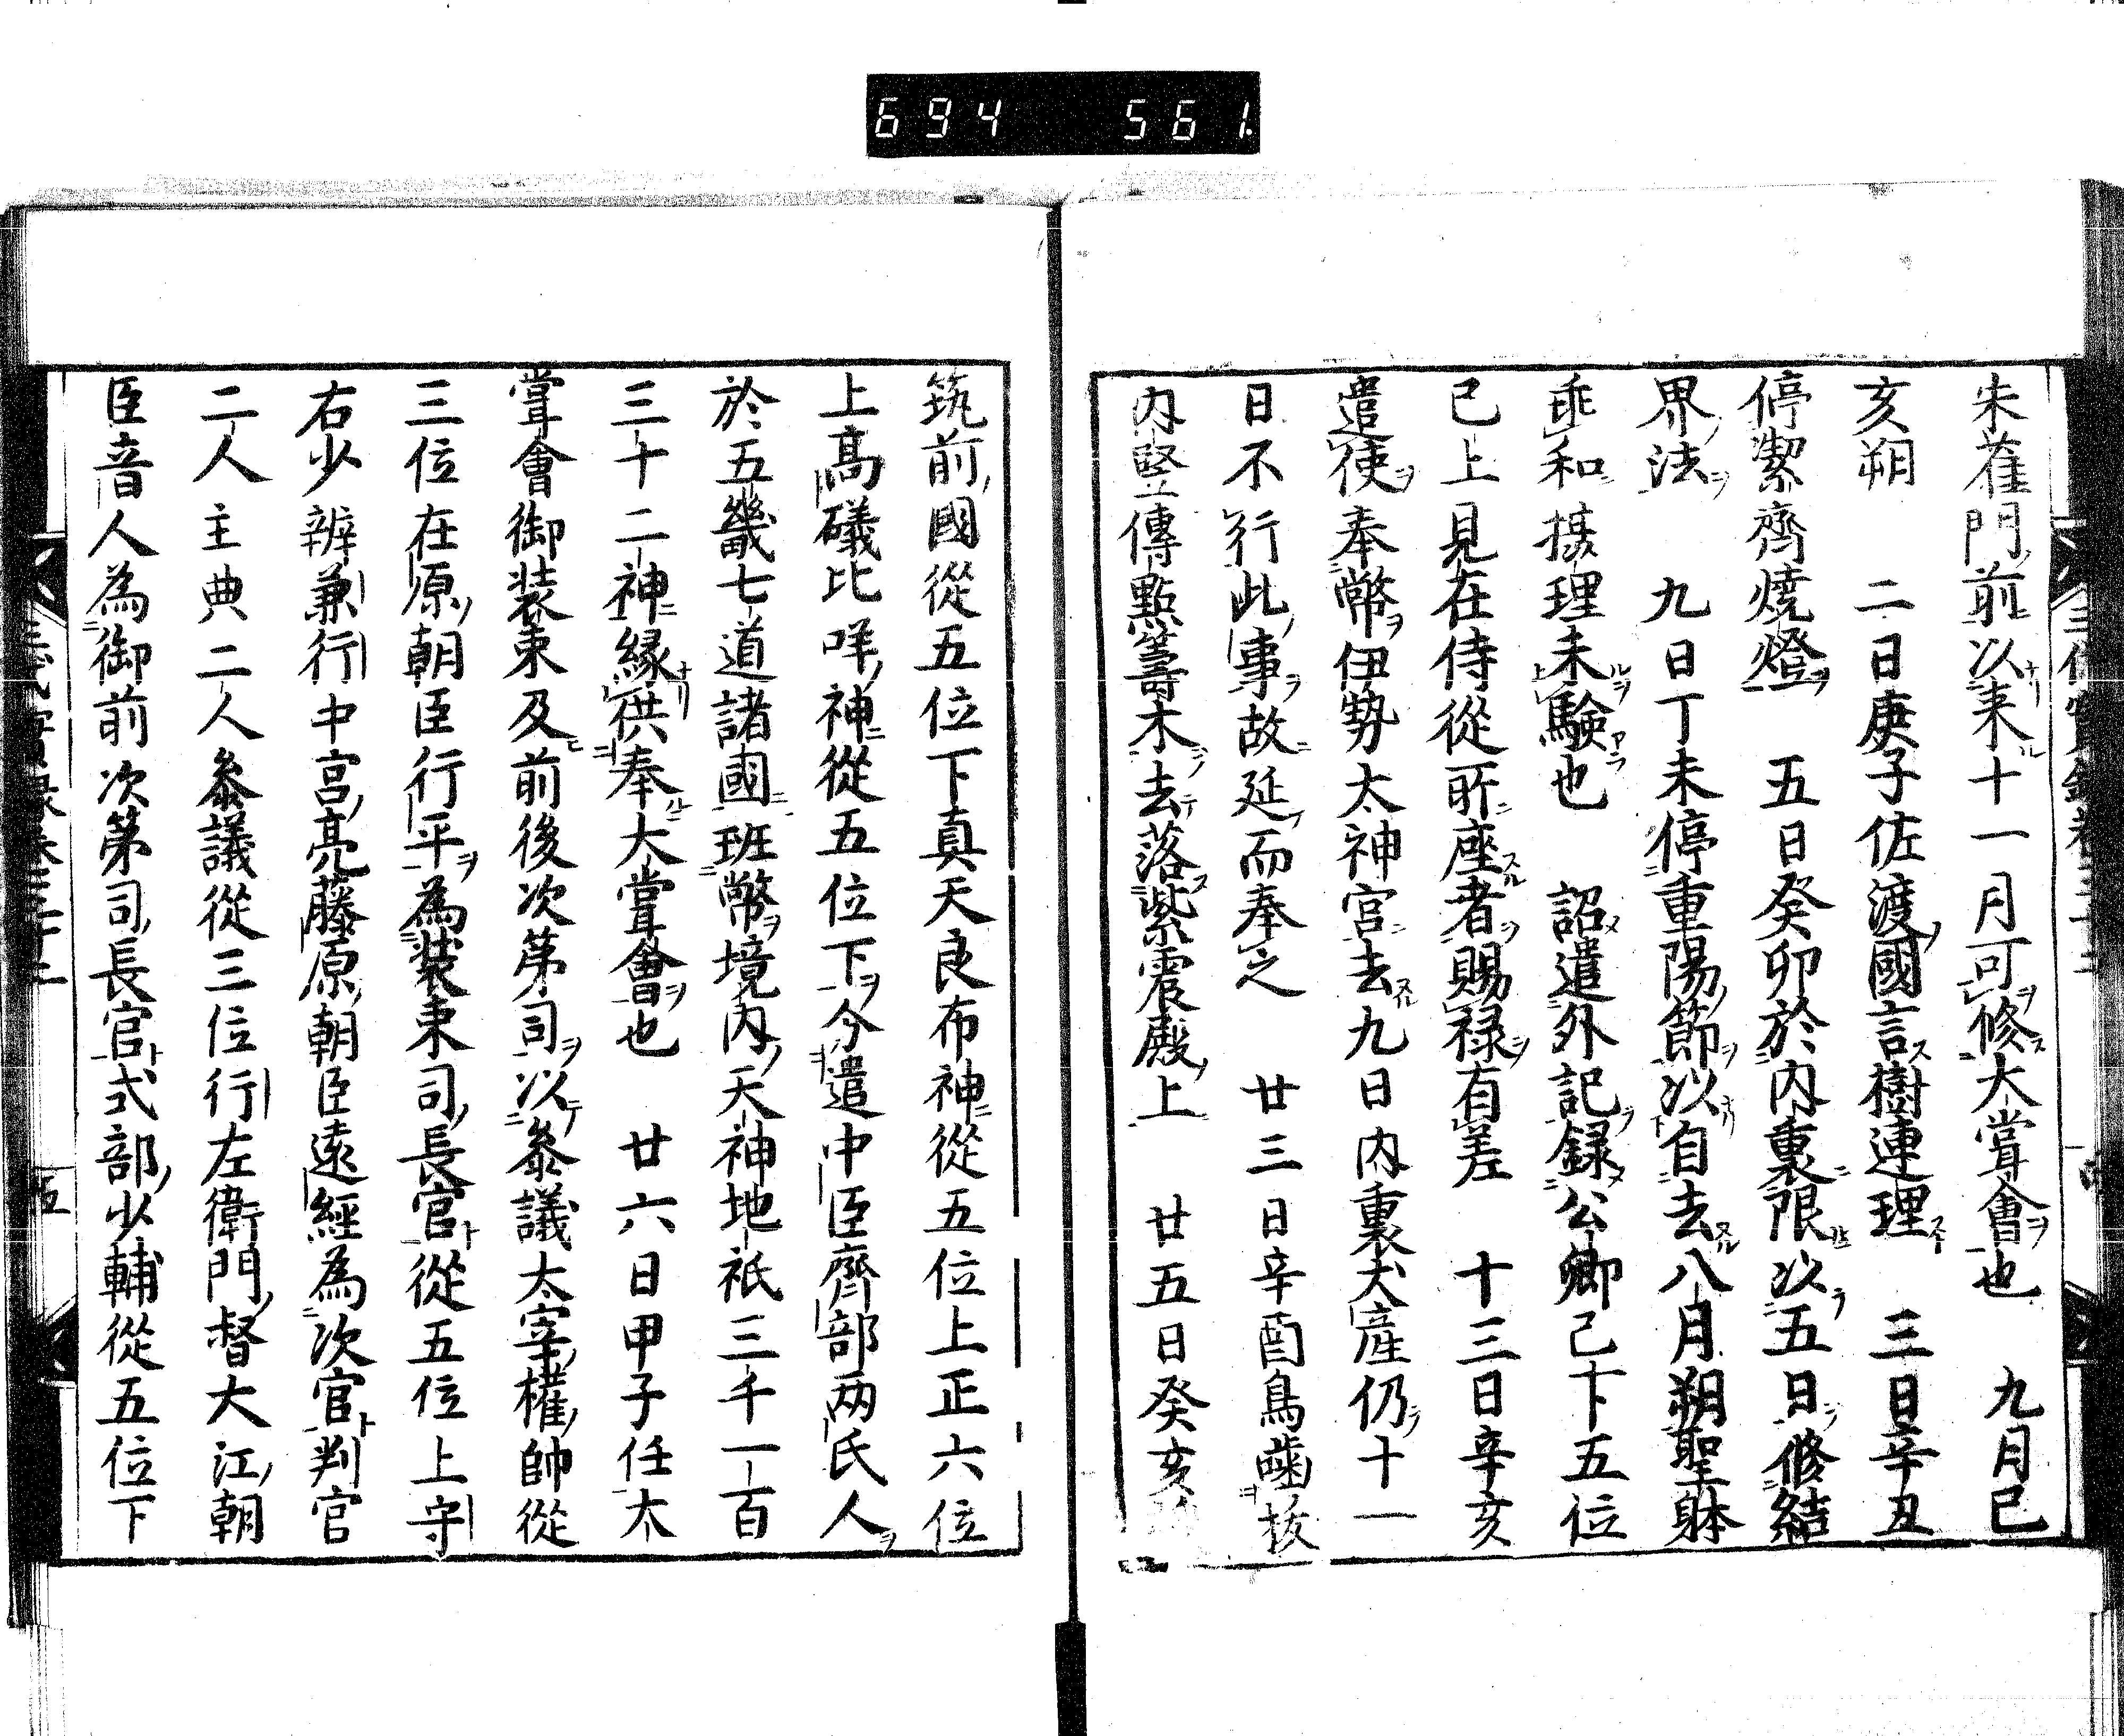 694 561.
朱雀門前以来十一月可修大甞會也 九月己
亥朔 二日庚子佐渡國言樹連理 三日辛丑
停潔齊燒燈 五日癸卯於内裏限以五日修結
界法 九日丁未停重陽節以自去八月朔聖躰
乖和攝理未驗也 詔遣外記録公卿已下五位
已上見在侍從所座者賜禄有差 十三日辛亥
遣使奉幣伊勢太神宮去九日内裏犬産仍十一
日不行此事故延而奉之 廿三日辛酉鳥嚙拔
内竪傳點籌木去落紫震殿上 廿五日癸亥
筑前國從五位下真天良布神從五位上正六位
上髙礒比咩神從五位下今遣中臣齊部兩氏人
於五畿七道諸國班幣境内天神地祇三千一百
三十二神縁供奉大甞會也 廿六日甲子任大
甞會御装束及前後次第司以叅議太宰權帥從
三位在原朝臣行平為装束司長官從五位上守
右少辨兼行中宮亮藤原朝臣遠經為次官判官
二人主典二人叅議從三位行左衛門督大江朝
臣音人為御前次第司長官式部少輔從五位下